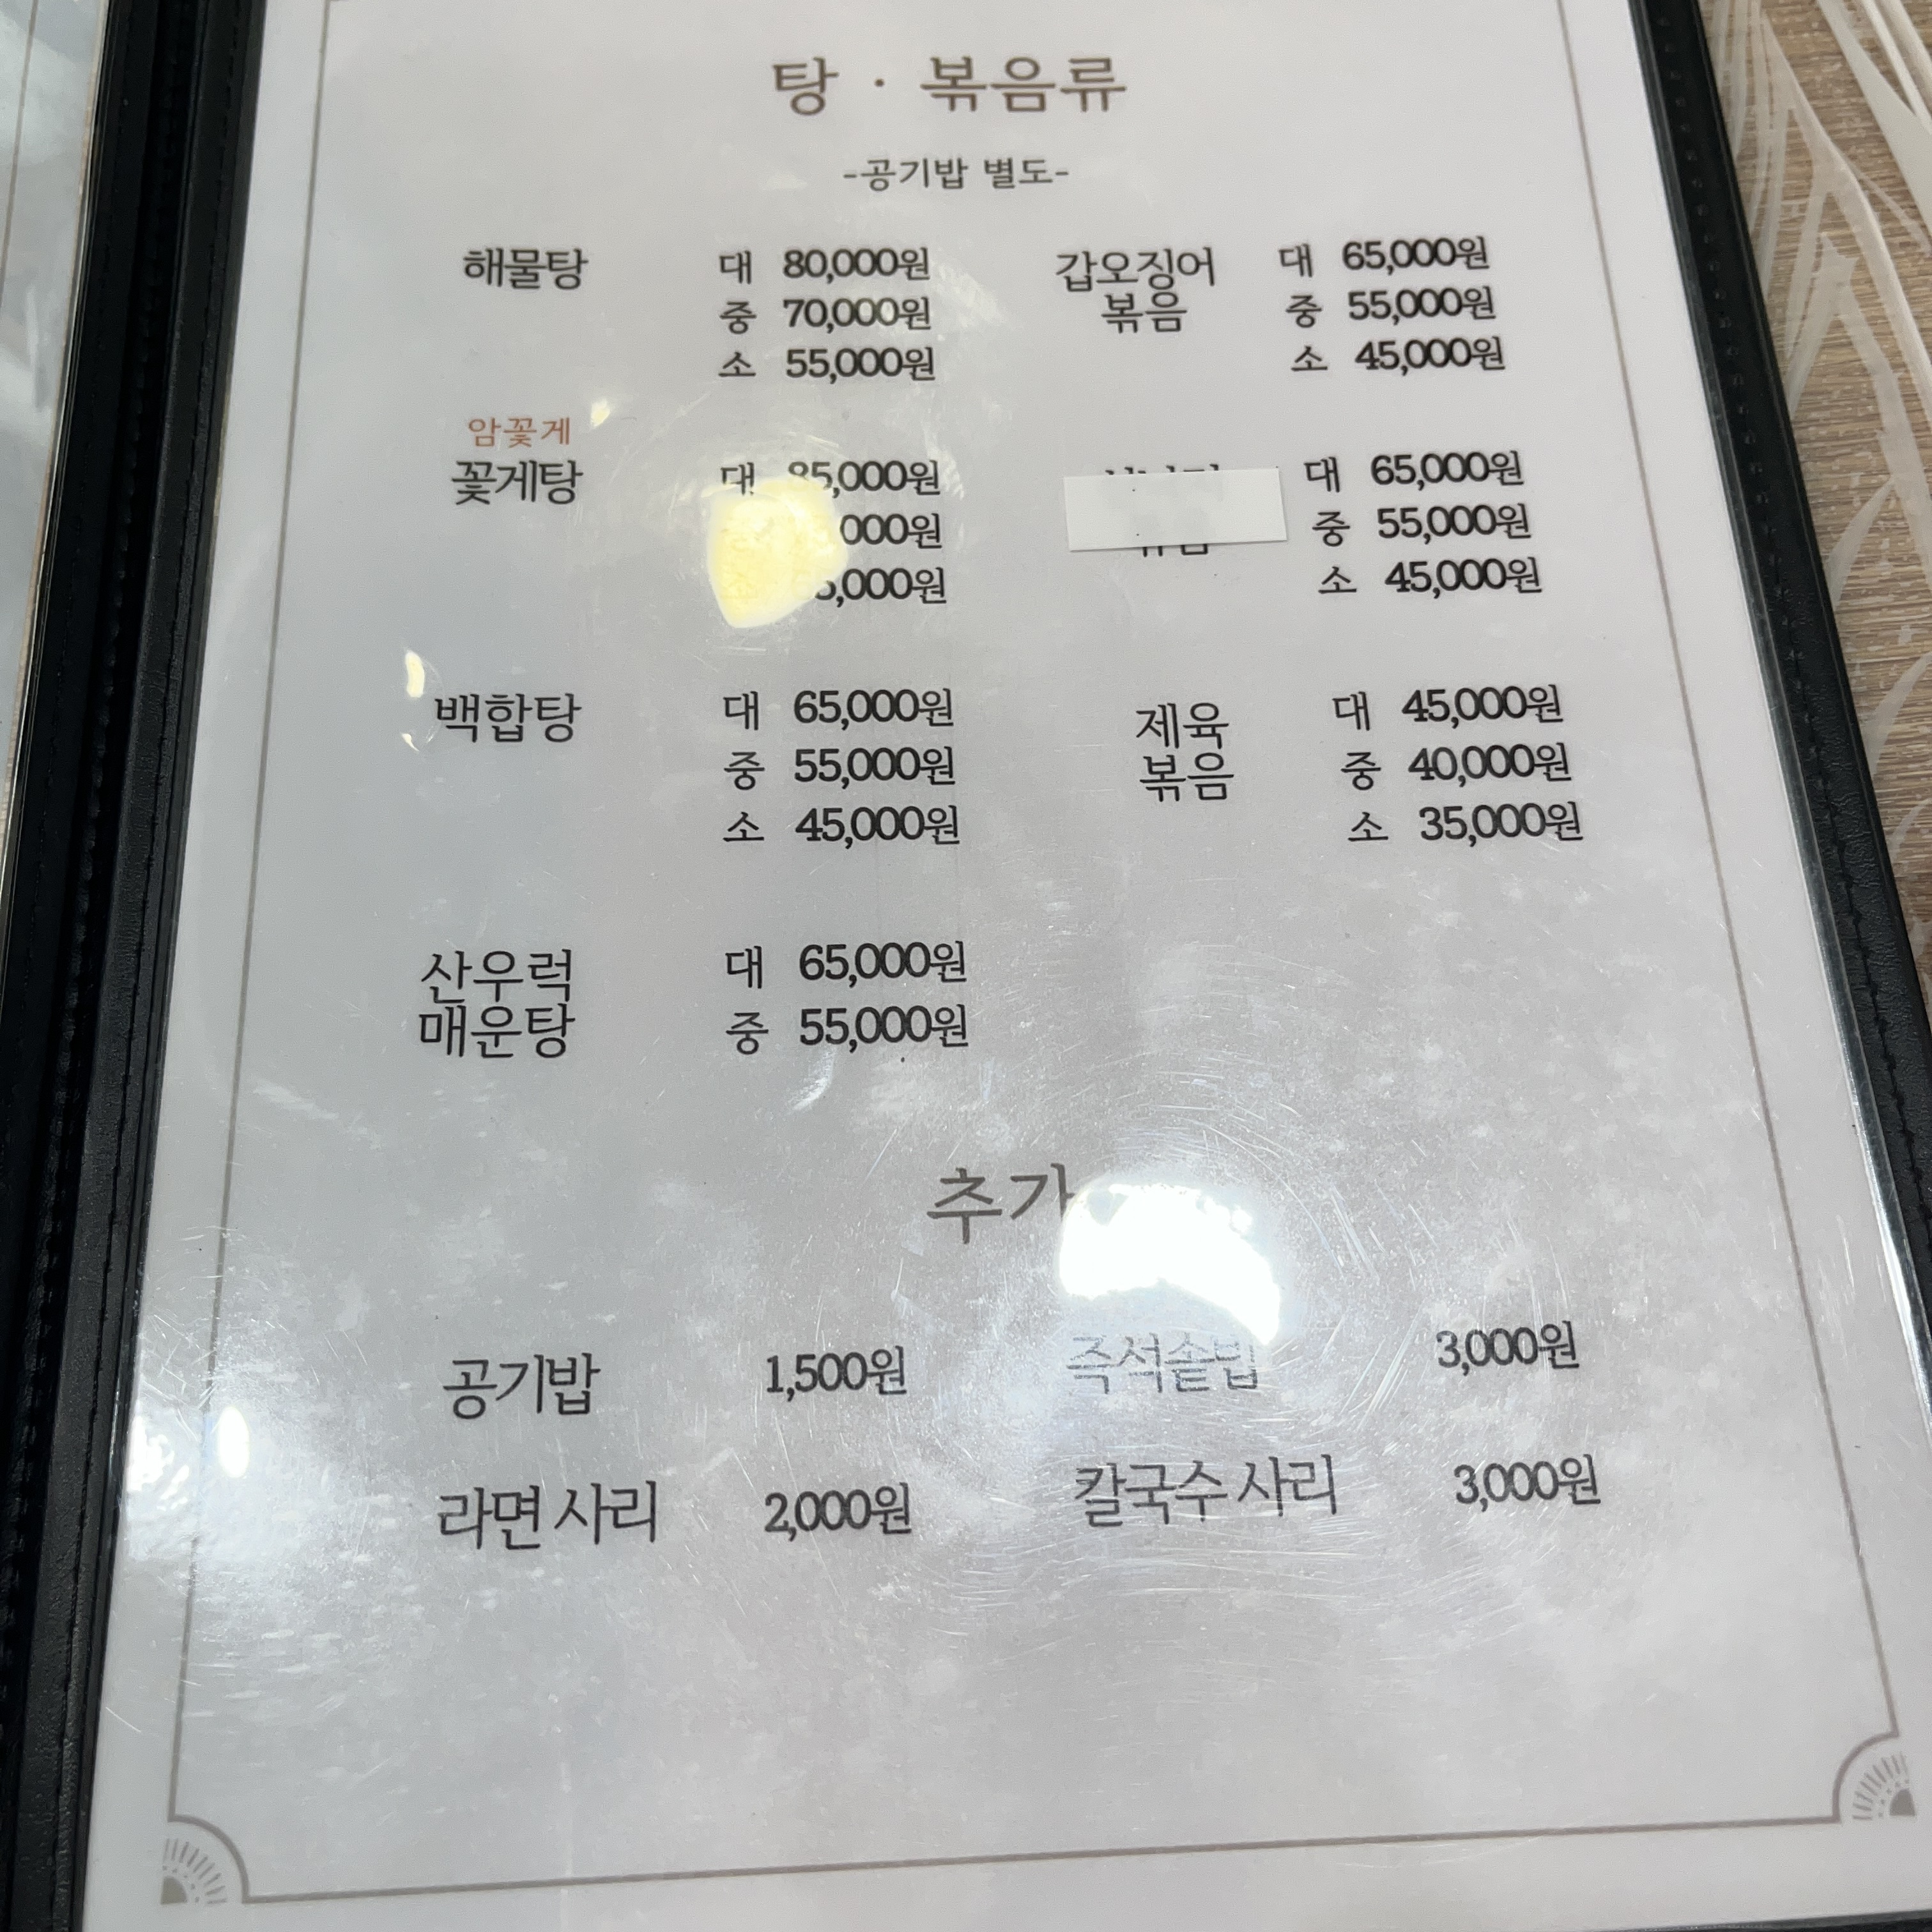 탕 · 볶음류
-공기밥 별도-
해물탕 대 80,000원
중 70,000원
소 55,000원
갑오징어
볶음
대 65,000원
중 55,000원
소 45,000원
암꽃게
꽃게탕 대 85,000원
대 65,000원
중 55,000원
소 45,000원
백합탕 대 65,000원
중 55,000원
소 45,000원
제육
볶음
대 45,000원
중 40,000원
소 35,000원
산우럭
매운탕
대 65,000원
중 55,000원
추가
공기밥 1,500원
즉석솥밥 3,000원
라면 사리 2,000원
칼국수 사리 3,000원